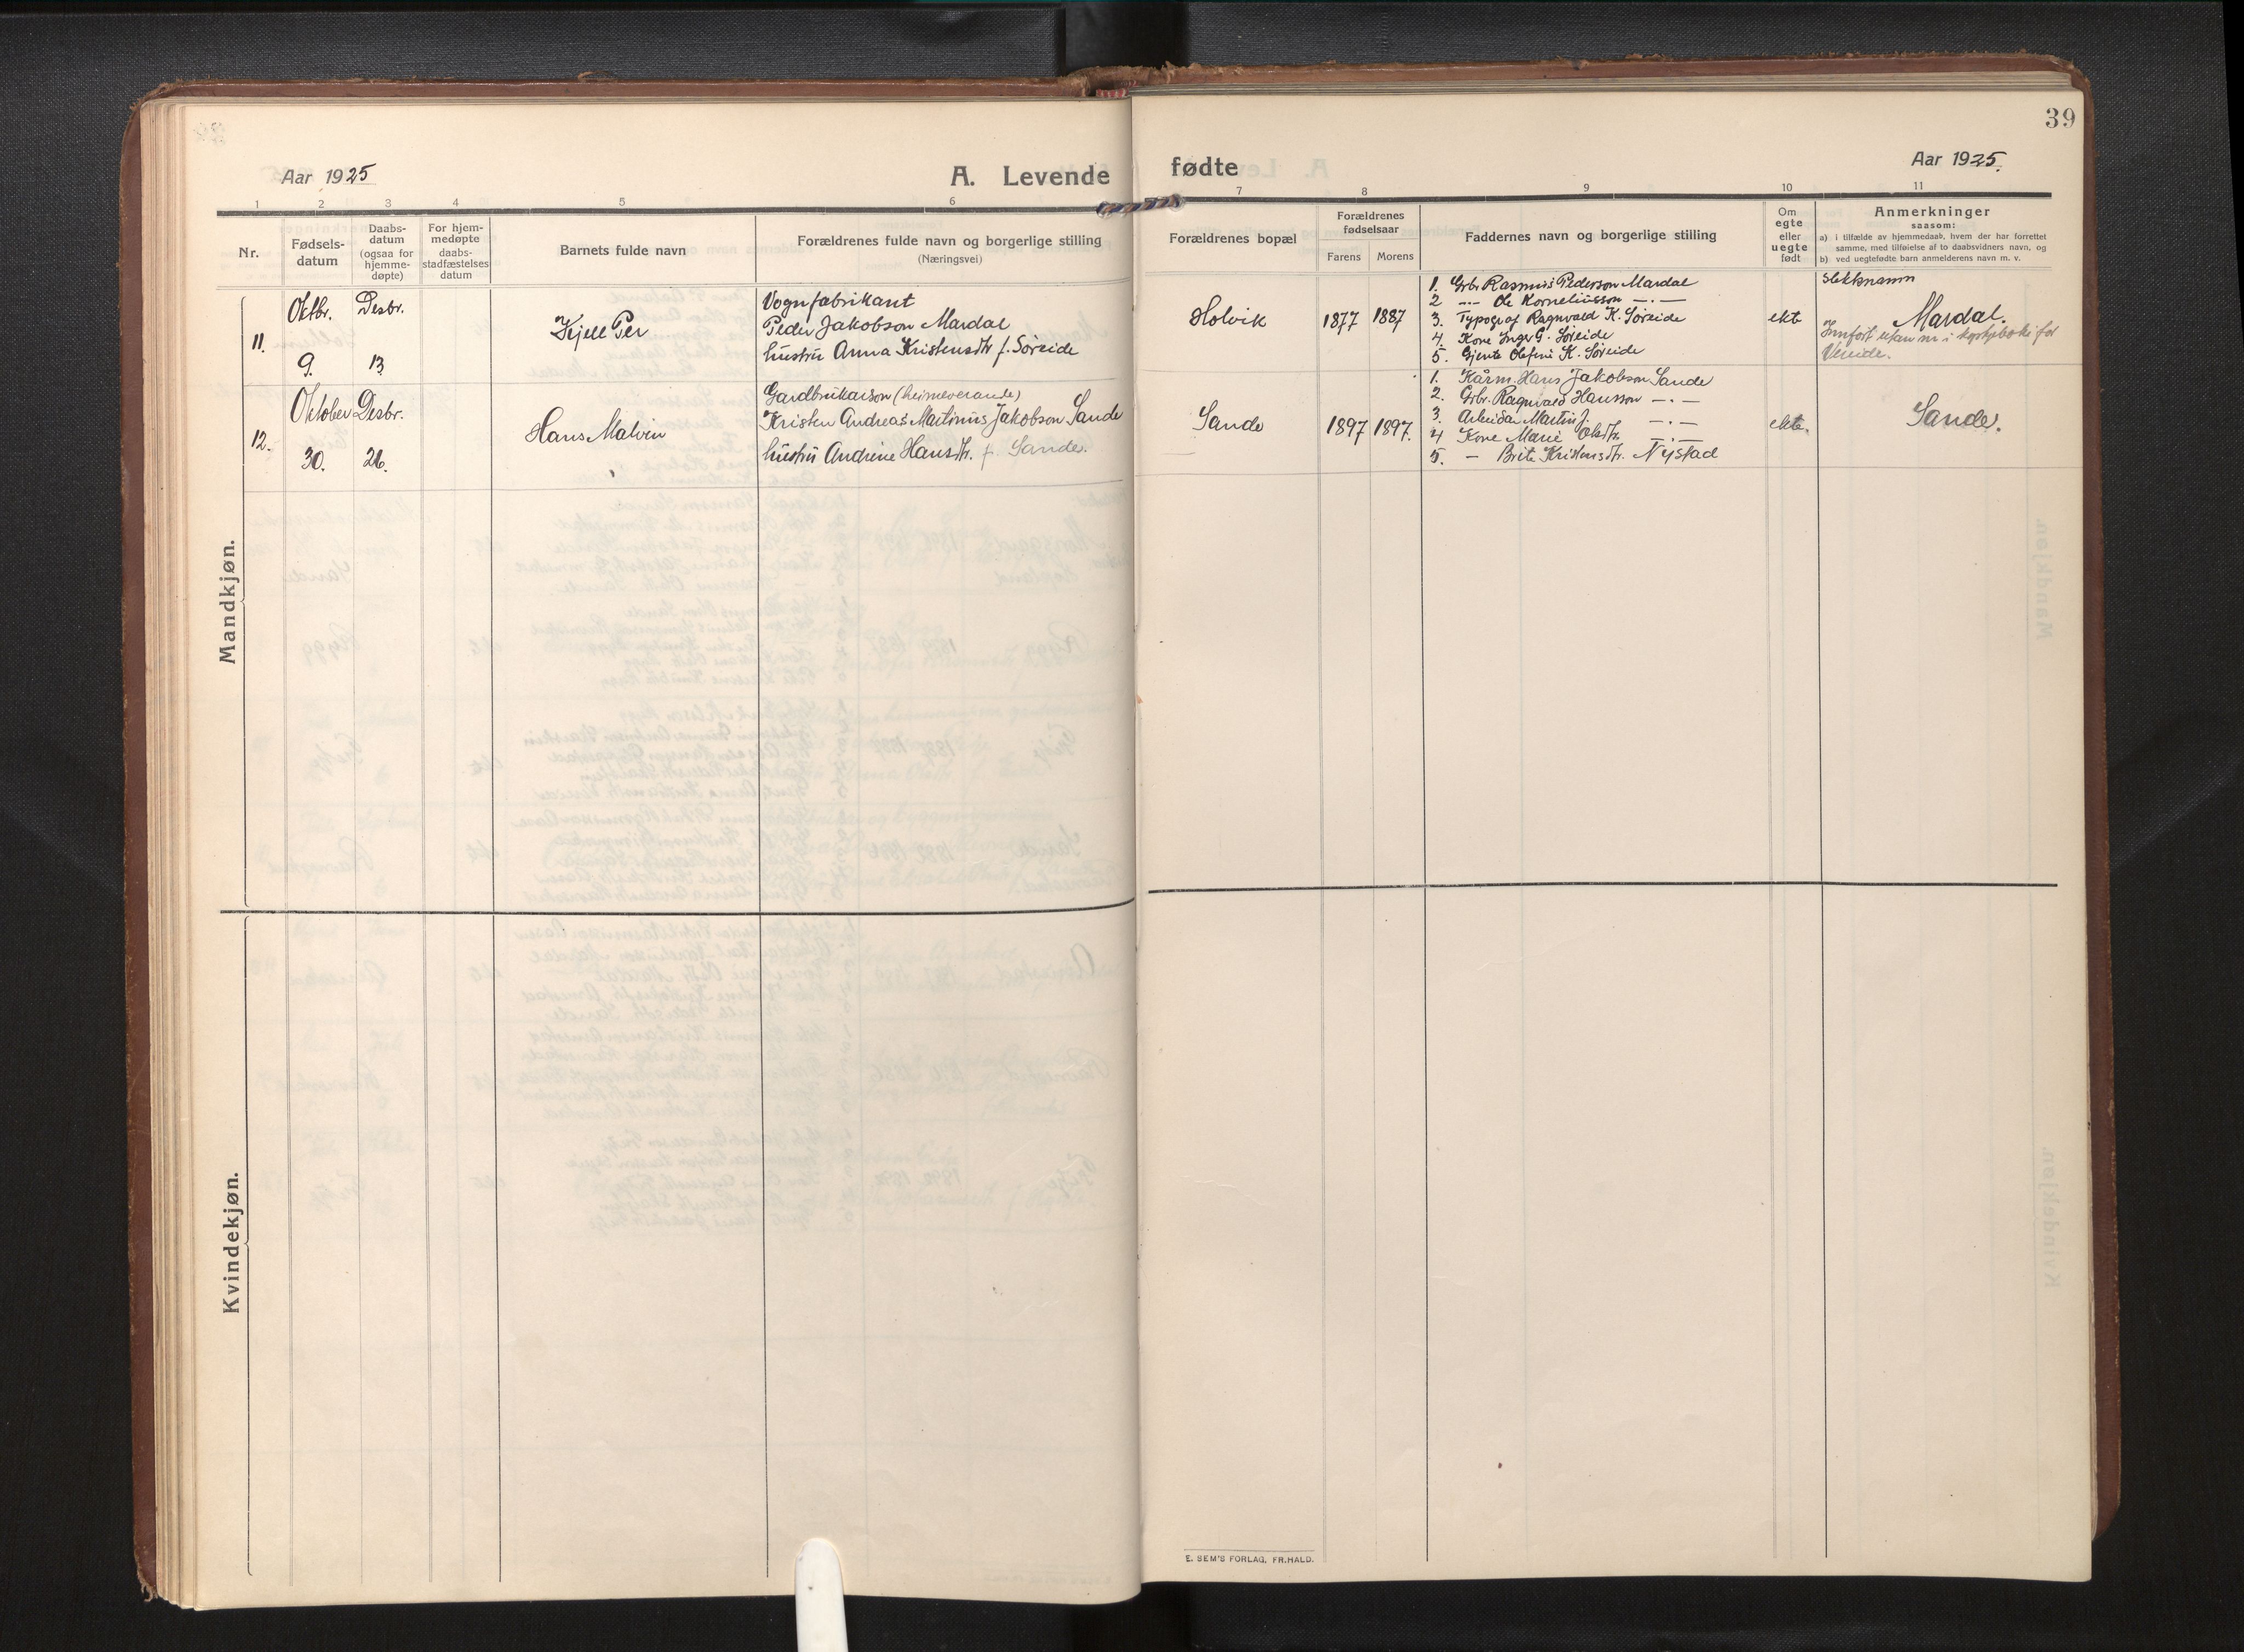 39
Aar 1925
A. Levende
fødte
Aar 1925.
1 2 3 4 5 6
7 8 9 10 11
Nr.
Fødsels-
datum
Daabs-
datum
(ogsaa for
hjemme-
døpte)
For hjem-
medøpte
daabs-
stadfæstelses
datum
Barnets fulde navn
Forældrenes fulde navn og borgerlige stilling
(Næringsvei)
Forældrenes bopæl
Forældrenes
fødselsaar
Farens Morens
Faddernes navn og borgerlige stilling
Om
egte
eller
uegte
født
Anmerkninger
saasom:
a) i tilfælde av hjemmedaab, hvem der har forrettet
samme, med tilføielse af to daabsvidners navn, og
b) ved uegtefødte barn anmelderens navn m. v.
Mandkjøn.
11.
Oktbr.
9.
Desbr.
13.
Kjell Per
Vognfabrikant
Peder Jakobson Mardal
hustru Anna Kristensdtr f. Søreide
Holvik
1877 1887
1. Grbr. Rasmus Pederson Mardal
2 -.- Ole Korneliusson -.-
3. Typograf Ragnvald K. Søreide
4. Kone Inger G. Søreide
5. Gjente Olefine K. Søreide
ekte
slektsnamn
Mardal.
Innført utan nr i kyrkjeboki for
Vereide.
12.
Oktober
30.
Desbr.
26.
Hans Malvin
Gardbrukarson (heimeverande)
Kristen Andreas Martinus Jakobson Sande
hustru Andrine Hansdtr. f. Sande.
Sande
1897 1897.
1. Kårm. Hans Jakobson Sande
2. Grbr. Ragnvald Hansson -.-
3. Arbeidar Martin J. -.-
4 Kone Marie Olsdtr. -.-
5. - Brite Kristensdtr. Nystad
ekte.
Sande.
Kvindekjøn.
E. SEM'S FORLAG, FR.HALD.